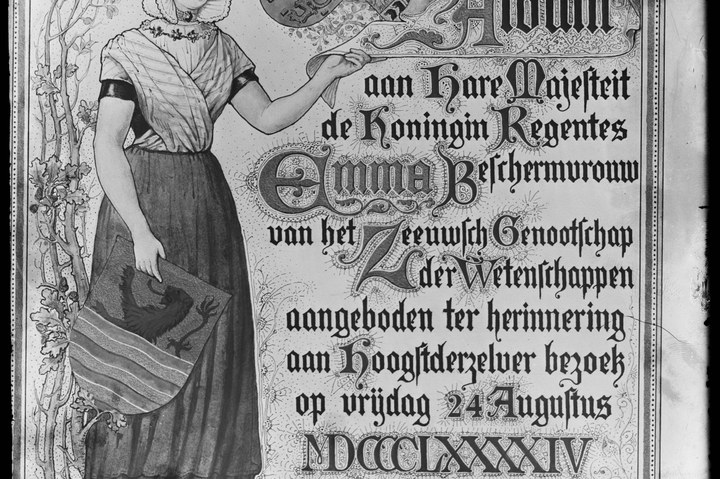 Album
aan Hare Majesteit
de Koningin Regentes
Emma Beschermvrouw
van het Zeeuwsch Genootschap
der Wetenschappen
aangeboden ter herinnering
aan Hoogstderzelver bezoek
op vrijdag 24 Augustus
MDCCCLXXXXIV